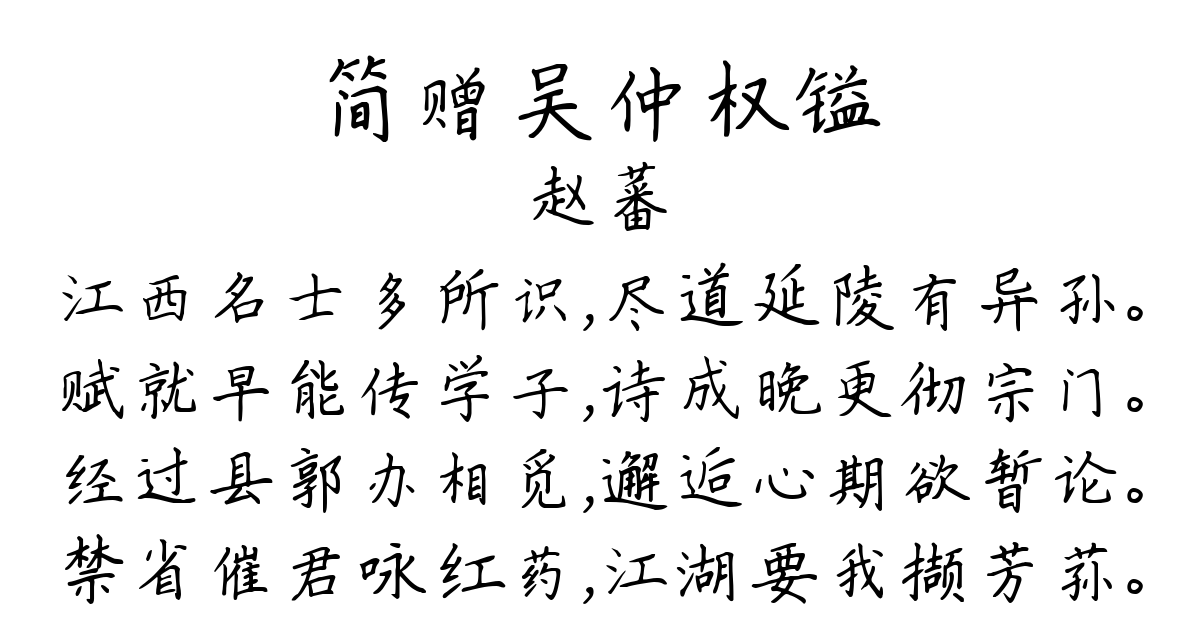 简赠吴仲权镒
赵蕃
江西名士多所识,尽道延陵有异孙。
赋就早能传学子,诗成晚更彻宗门。
经过县郭办相觅,邂逅心期欲暂论。
禁省催君咏红药,江湖要我撷芳荪。